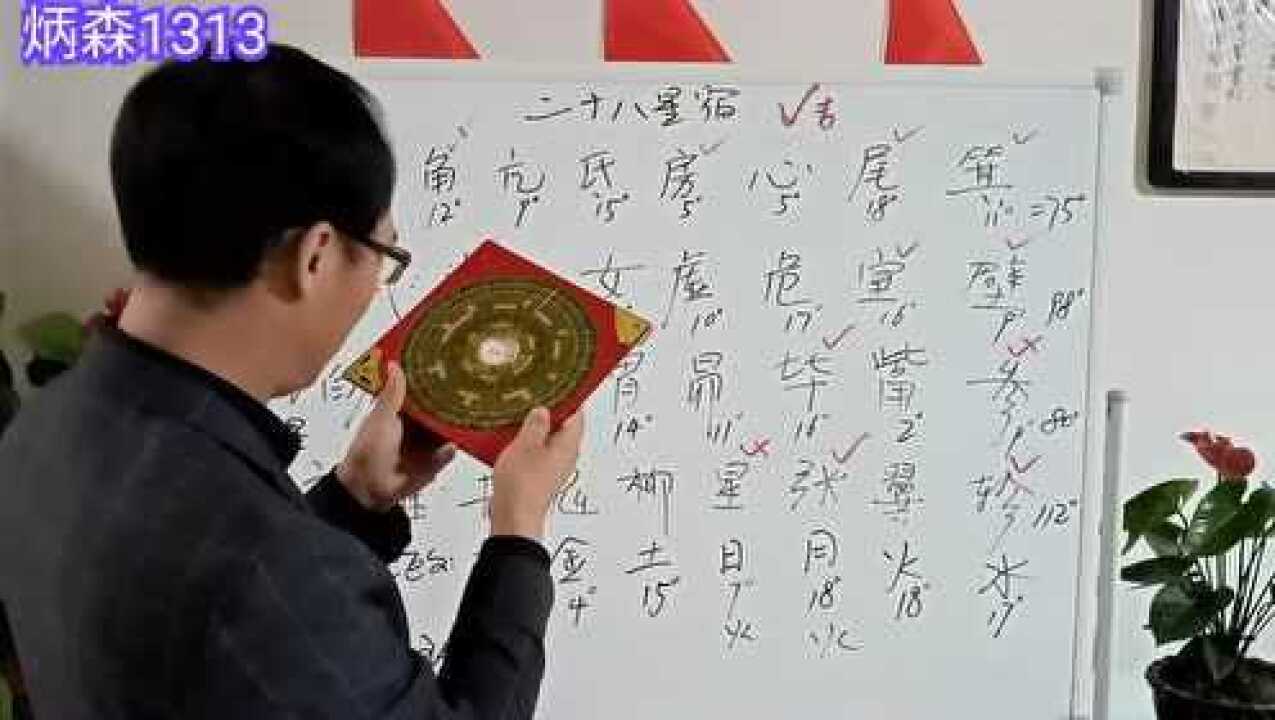 炳森1313
二十八星宿 ✓吉
角 亢 氐 房 心 尾 箕
12° 9° 15° 5° 5° 18° 11° =75°
女 虚 危 室 壁
10° 17° 16° 9° 98°
胃 昴 毕 觜 参
14° 11° 16° 2° 9° 80°
柳 星 张 翼 轸
112°
金 土 日 月 火 水
4° 15° 7° 18° 18° 17°
火 火